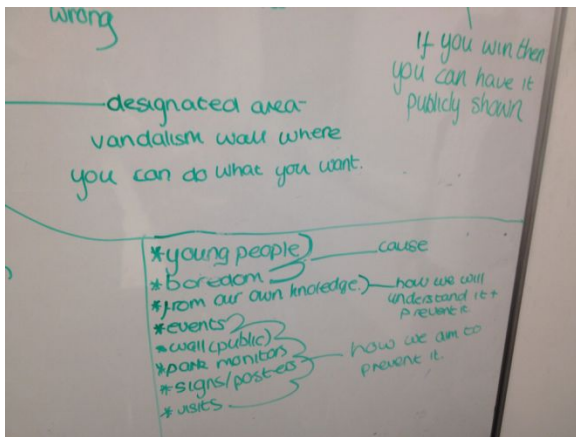 wrong
If you win then
you can have it
publicly shown
designated area-
vandalism wall where
you can do what you want.
*young people
cause
*boredom
*from our own knoledge.
how we will
understand it +
prevent it
*events
*wall(public)
*park monitors
*signs/posters
*visits
how we aim to
prevent it.